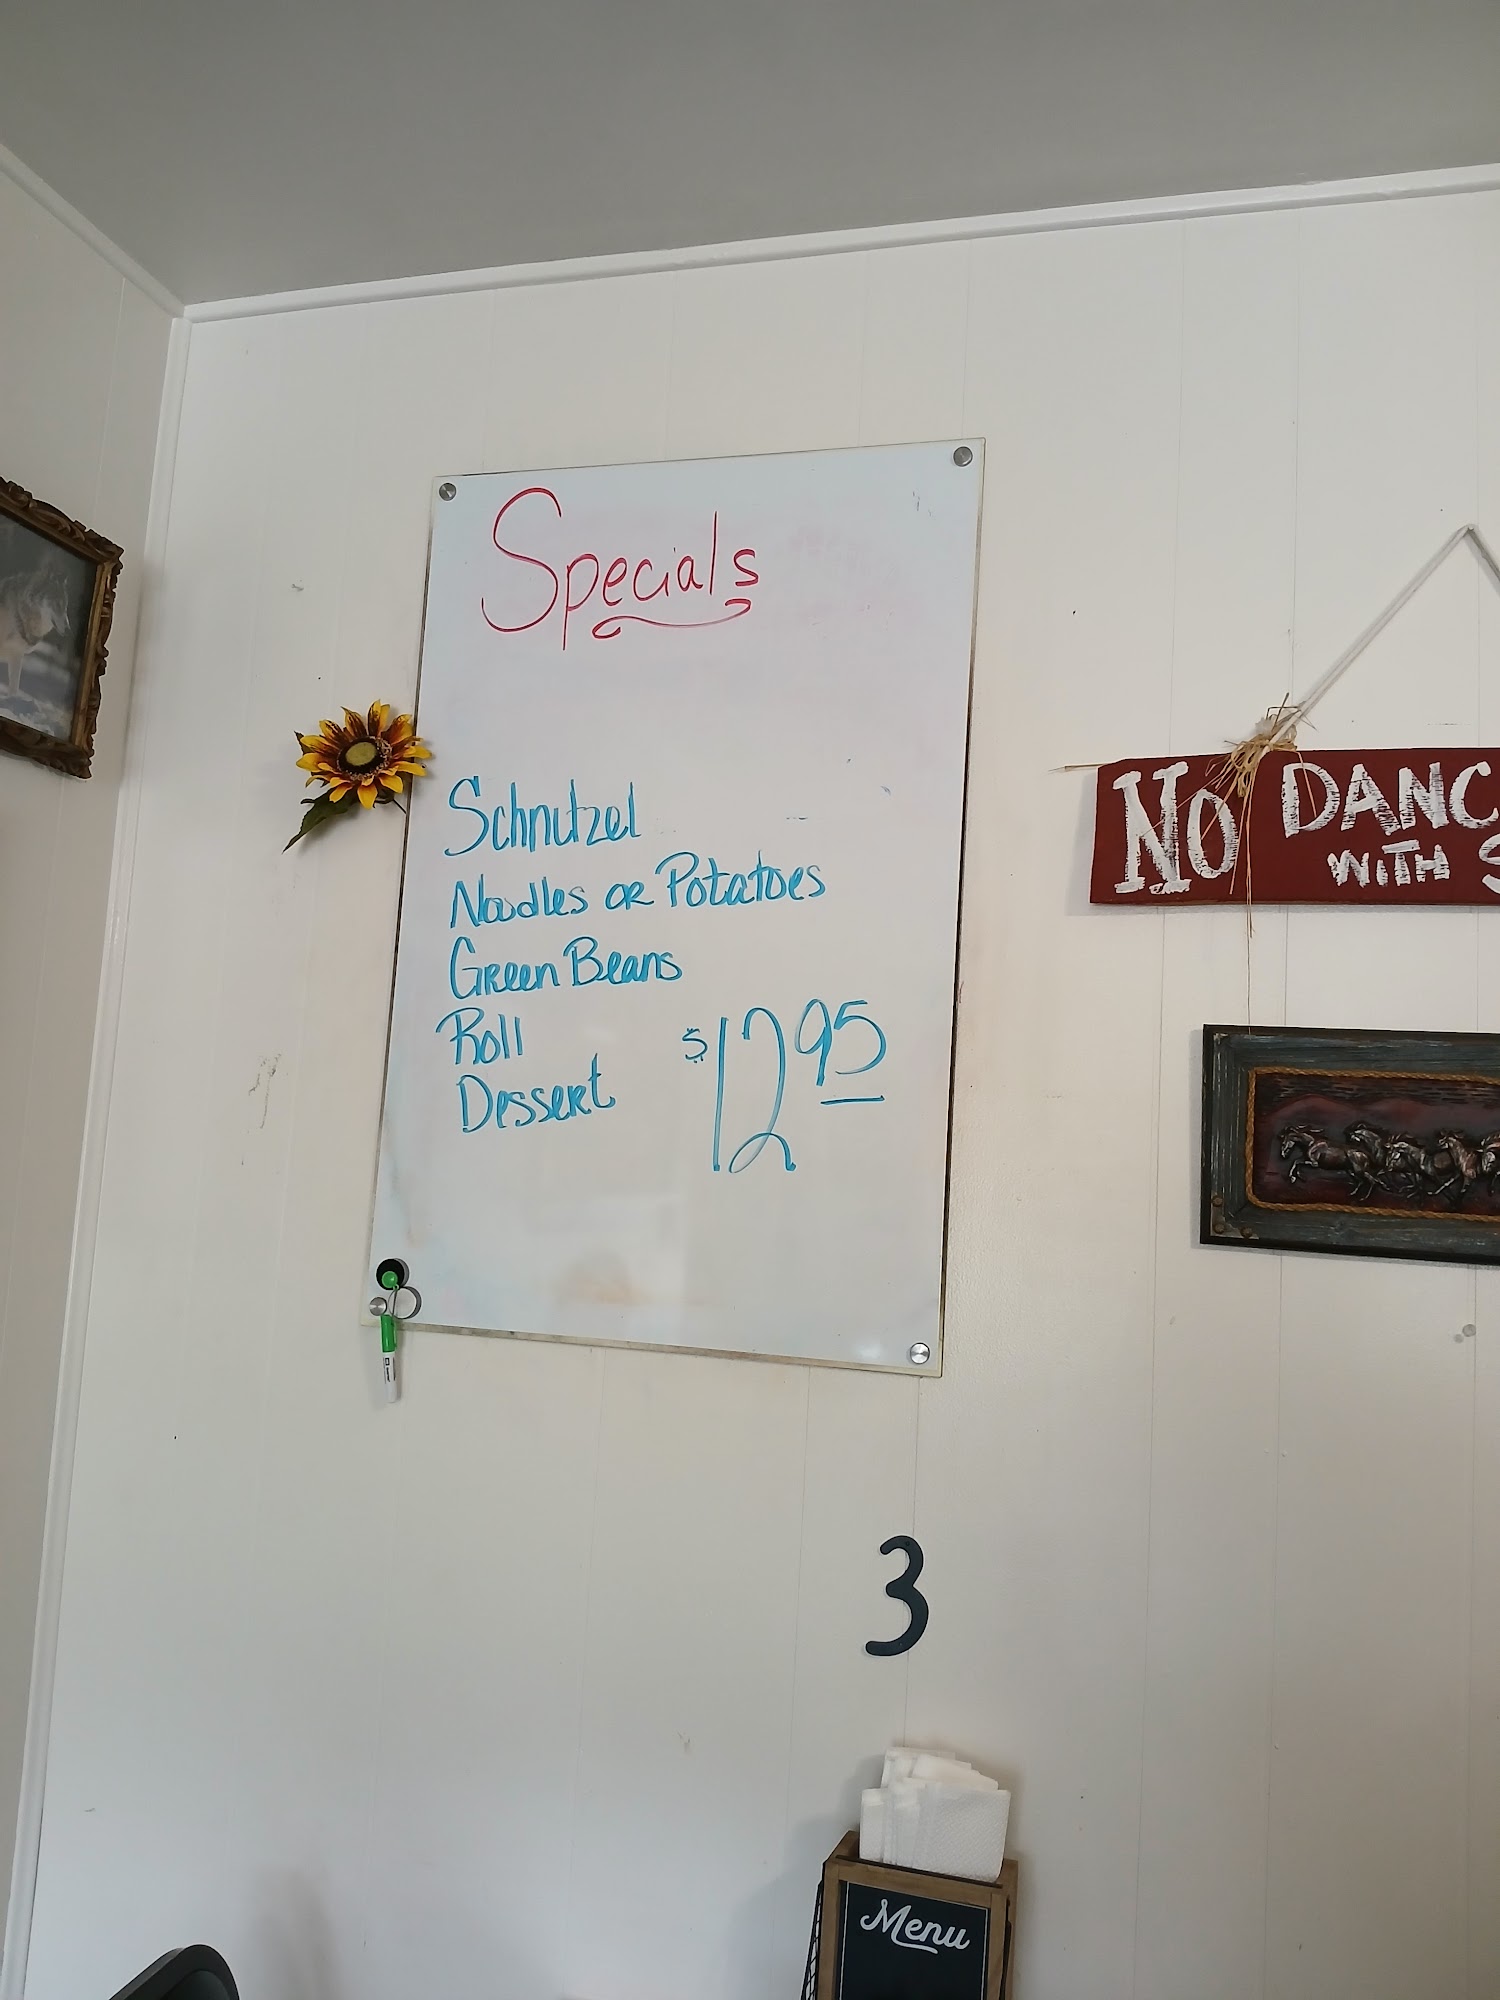 Specials
Schnitzel
Noodles or Potatoes
Green Beans
Roll
Dessert
$12 95
No DANC
WITH S
3
Menu